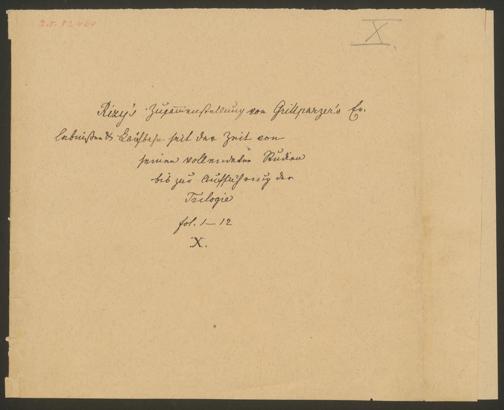 X
Rizy's Zusammenstellung von Grillparzer's Er-
lebnißen & seit der Zeit von
seinen vollendeten Studien
bis zur Aufführung der
Trilogie
fol. 1–12
X.